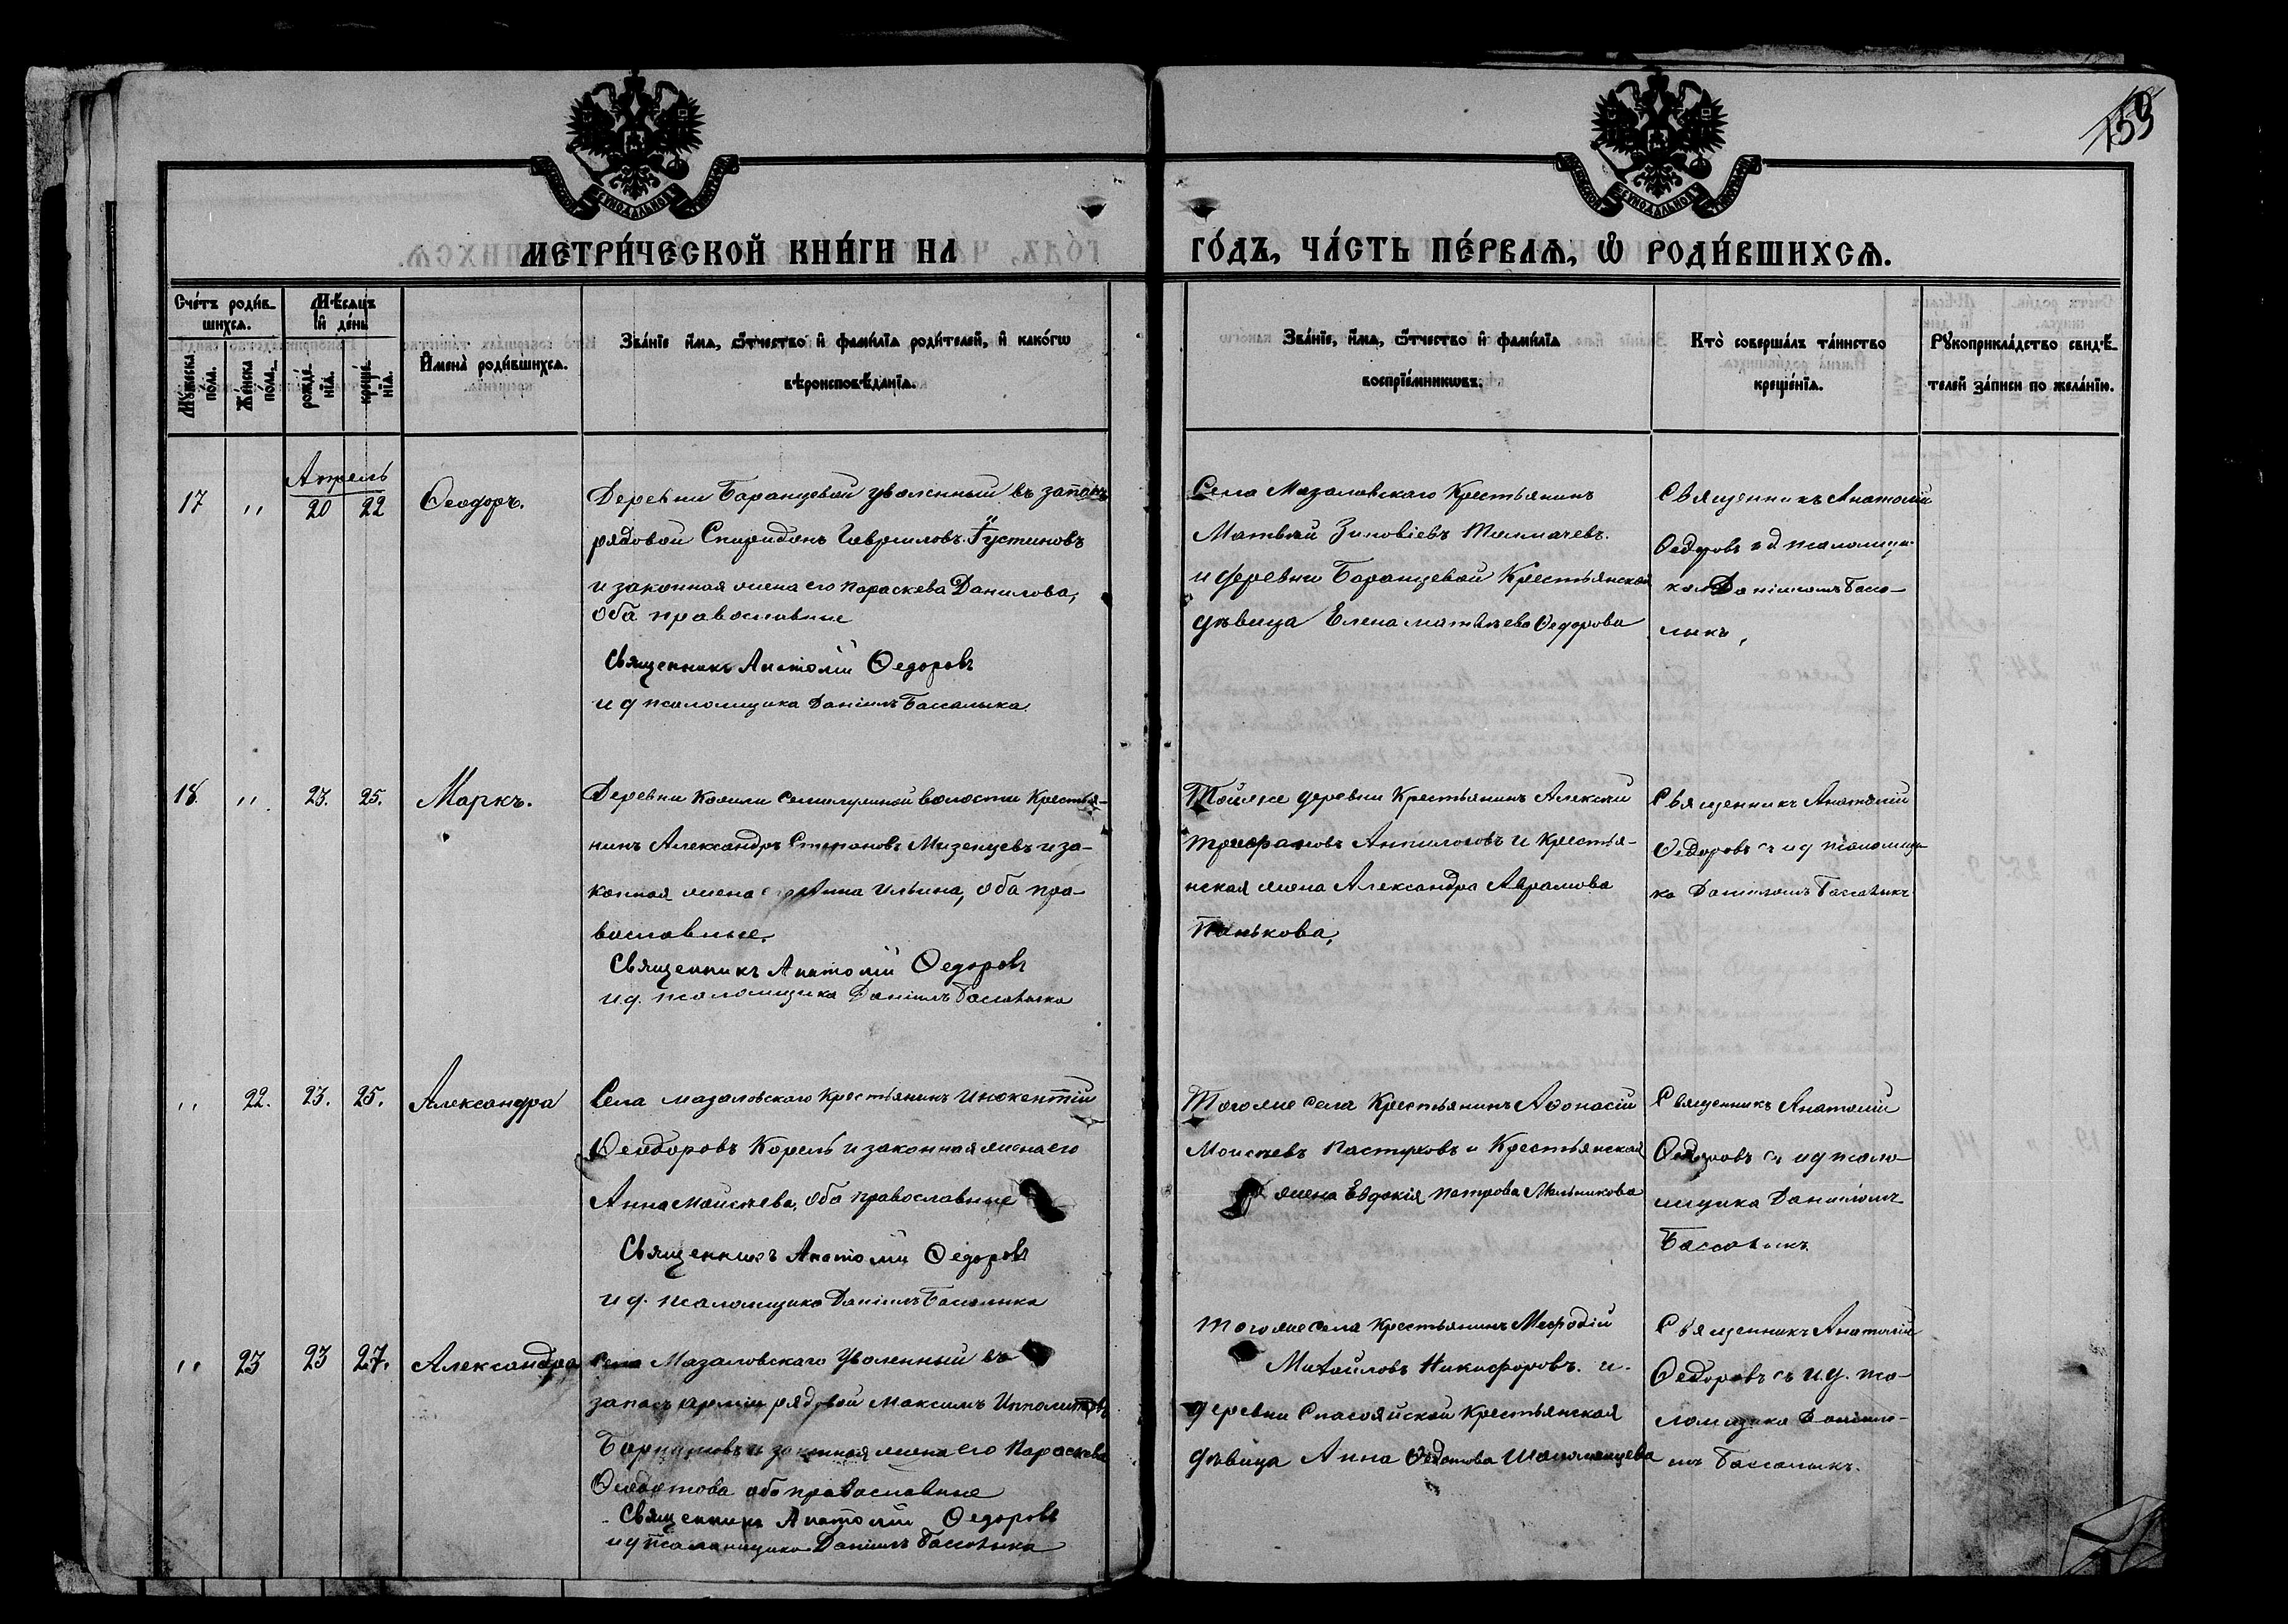 159
МЕТРИ́ЧЕСКОЙ КНИ́ГИ НА
ГО́ДЪ, ЧА́СТЬ ПЕ́РВАѦ, Ѡ҆ РОДИ́ВШИХСѦ.
Сче́тъ роди́в-
шихсѧ.
Му́жеска по́ла.
Же́нска по́ла.
Мѣ́сѧцъ
и҆ де́нь
рожде́нїѧ.
креще́нїѧ.
И҆мена̀ роди́вшихсѧ.
Зва́нїе и҆́мѧ, ѻ҆́тчество и҆ фами́лїѧ роди́телей, и҆ како́гѡ
вѣроисповѣ́данїѧ.
Зва́нїе, и҆́мѧ, ѻ҆́тчество и҆ фами́лїѧ
воспрїе́мникѡвъ.
Кто̀ соверша́лъ та́инство
креще́нїѧ.
Рꙋкоприкла́дство свидѣ́-
телей за́писи по жела́нїю.
Апрель
17 " 20 22 Ѳеодоръ.
Деревни Баранцевой уволенный въ запасъ
рядовой Спиридонъ Гавриловъ Густиновъ
и законная жена его Параскева Данилова,
оба православные
Священникъ Анатолій Ѳедоровъ
и д псаломщика Даніилъ Бассалыка
Села Мазаловскаго Крестьянинъ
Матвѣй Зиновіевъ Толмачевъ.
и деревни Баранцевой Крестьянская
дѣвица Елена Матвѣева Ѳедорова
Священникъ Анатолій
Ѳедоровъ и д псаломщи-
комъ Даніиломъ Басса-
лыкъ,
18. " 23. 25. Маркъ.
Деревни Крестья-
нинъ Александръ Степановъ Мизенцевъ и за-
конная жена его Анна Ильина, оба пра-
вославные.
Священникъ Анатолій Ѳедоровъ
и д. псаломщика Даніилъ Бассалыка
Тойже деревни Крестьянинъ Алексѣй
Трифановъ Анпилоговъ и Крестья-
нская жена Александра Аврамова
Панькова,
Священникъ Анатолій
Ѳедоровъ съ и д псаломщи-
ка Даніиломъ Бассалыкъ
" 22. 23. 25. Александра
Села Мазаловскаго Крестьянинъ Инокентій
Ѳеодоровъ Корель и законная жена его
Анна Моисѣева, оба православные
Священникъ Анатолій Ѳедоровъ
и д. псаломщика Даніилъ Бассалыка
Тогоже села Крестьянинъ Аѳонасій
Моисѣевъ Пастуховъ и Крестьянская
жена Евдокія Петрова Мельникова
Священникъ Анатолій
Ѳедоровъ съ и д псало-
мщика Даніиломъ
Бассалыкъ
" 23 23 27. Александра
Села Мазаловскаго Уволенный въ
запасъ арміи рядовой Максимъ Ипполитовъ
и законная жена его Параскева
Ѳедотова оба православные
Священникъ Анатолій Ѳедоровъ
и д псаломщика Даніилъ Бассалыка
Тогоже села Крестьянинъ Меѳодій
Михайловъ Никифоровъ. и
деревни Спасояйской Крестьянская
дѣвица Анна Ѳедотова Шаломенцева
Священникъ Анатолій
Ѳедоровъ съ и.д. пса-
ломщика Даніило-
мъ Бассалыкъ.